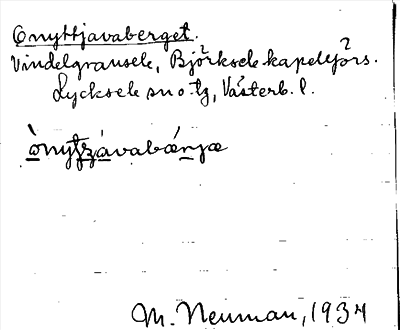 Onyttjavaberget.
Vindelgransele, Björksele kapellförs.
Lycksele sn o. tg, Västerb. l.
ònytʒávabǽŋjæ
M. Neuman, 1934